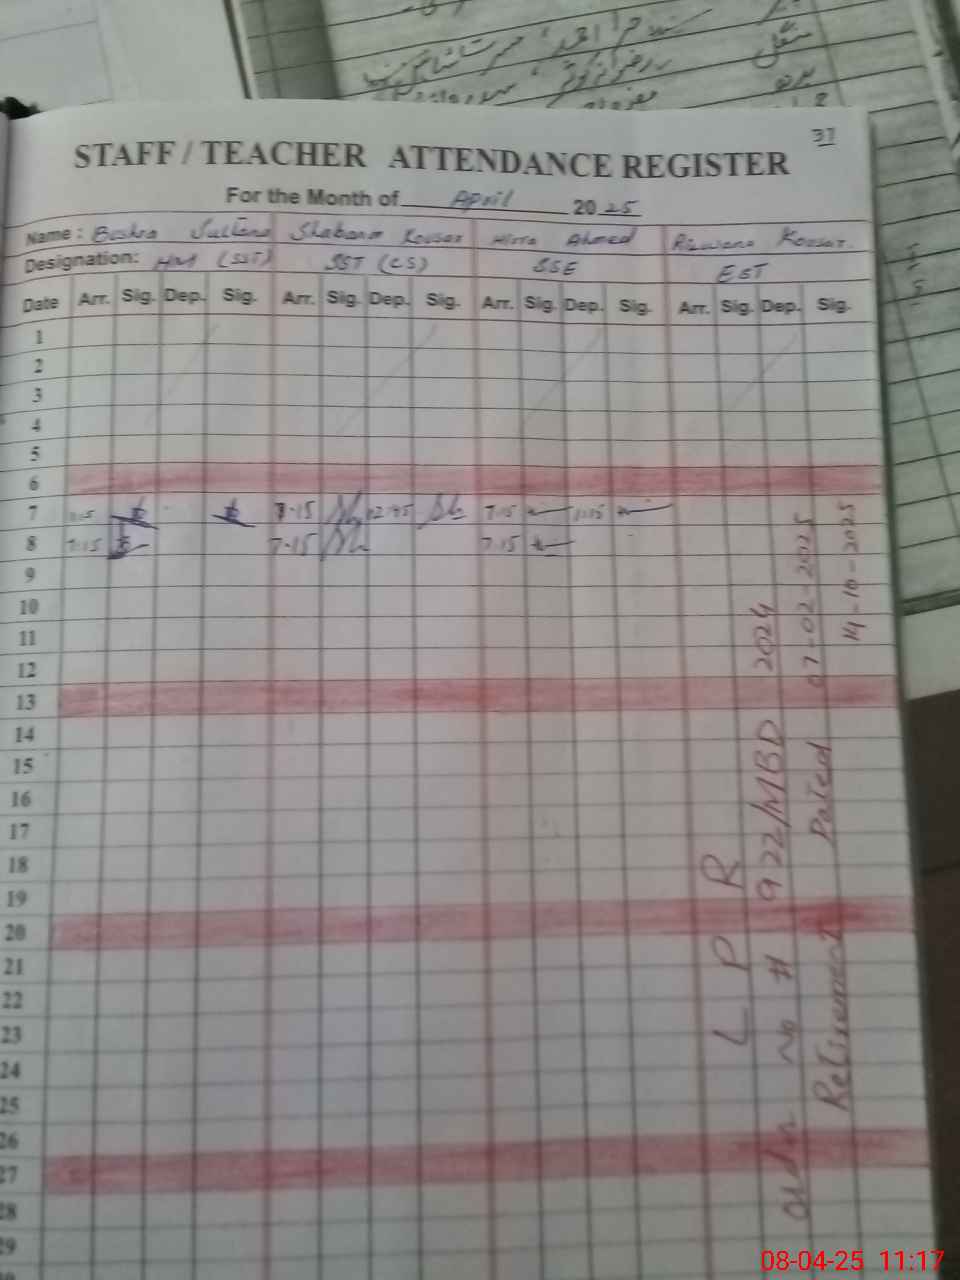 37
STAFF / TEACHER ATTENDANCE REGISTER
For the Month of April 2025
Name: Bushra Sultana Shabana Kousar Hira Ahmed Rizwana Kousar.
Designation: HM (SST) SST (CS) SSE EST
Date Arr. Sig. Dep. Sig. Arr. Sig. Dep. Sig. Arr. Sig. Dep. Sig. Arr. Sig. Dep. Sig.
1
2
3
4
5
6
7 7.15 12:45 7.15
8 7.15 7.15 7.15
9
10
11
12
13
14
15
16
17
18
19
20
21
22
23
24
25
26
27
28
29
L P R
No # 922/MBD 2024
Dated 07-02-2025
Retirement 14-10-2025
08-04-25 11:17